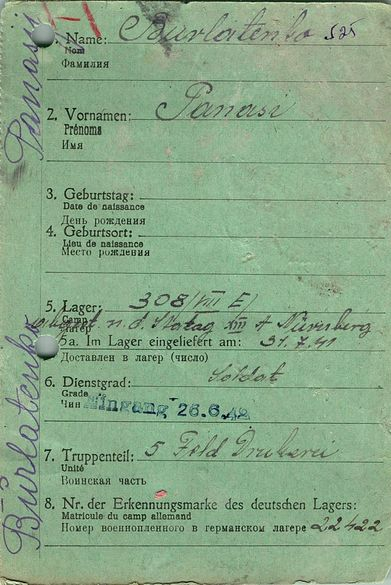 1. Name: Burlatenko
Nom
Фамилия
2. Vornamen: Panasi
Prénoms
Имя
3. Geburtstag:
Date de naissance
День рождения
4. Geburtsort:
Lieu de naissance
Место рождения
5. Lager: 308/VIII E/
Camp
Лагерь
n. d. Stalag XIII A Nürnberg
5a. Im Lager eingeliefert am: 31.7.41
Доставлен в лагерь (число)
6. Dienstgrad: Soldat
Grade
Чин
Eingang 26.6.42
7. Truppenteil: 5 Feld Drukerei
Unité
Воинская часть
8. Nr. der Erkennungsmarke des deutschen Lagers:
Matricule du camp allemand
Номер военнопленного в германском лагере 22422
Burlatenko Panasi